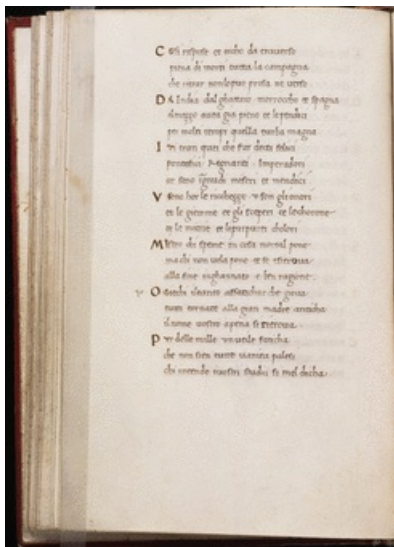 Cosi rispose et ecco da traverso
piena di morti tutta la campagna
che non lopuo prosa ne verso
Da India dal ghataio morroccho et spagna
ilmezzo avea gia pieno et lependici
per molti tempi quella turba magna
Ivi eran quei che fur detti felici
pontefici Regnanti Imperadori
or sono ignudi miseri et mendici
V sono hor le richezze v son glionori
et le gemme et gli sceptri et lechorone
et le mitrie et lepurpurei cholori
Miser chi speme in cosa mortal pone
ma chi non vela pone et se sitruova
alla fine inghannato e ben ragione
O ciechi iltanto affatichar che giova
tutti tornate alla gran madre anticha
ilnome vostro apena si ritruova
Pur delle mille un utile faticha
che non sien tutte vanita palesi
chi intende vostri studii si mel dicha